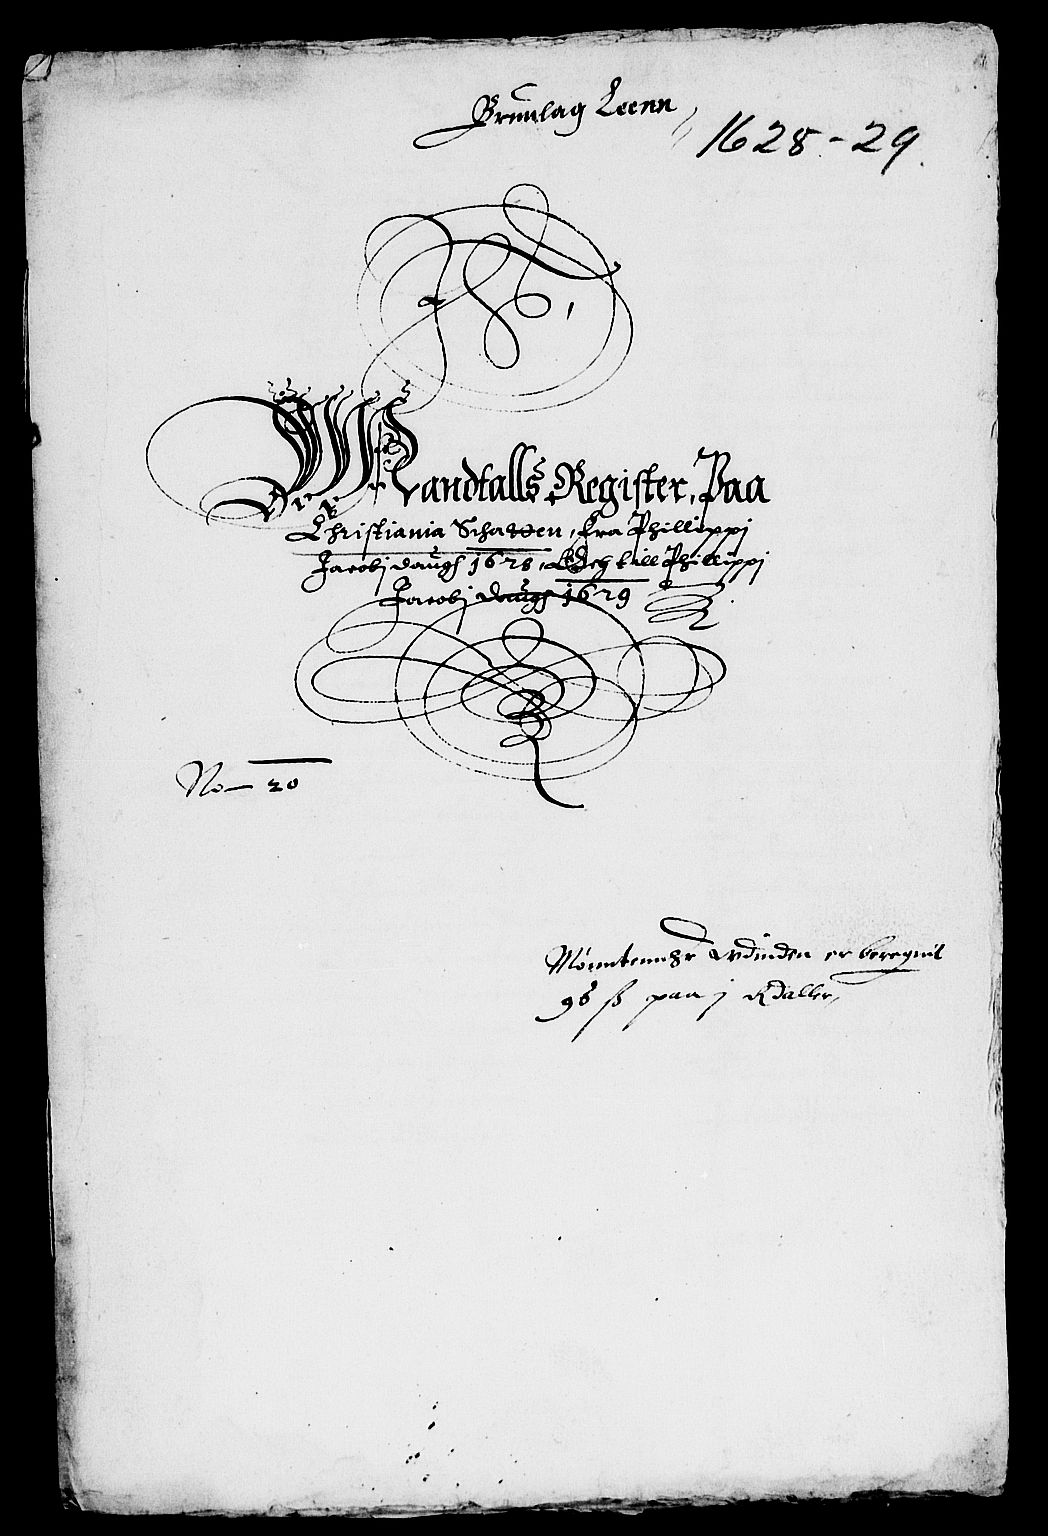 Brunlag Leenn
1628-29.
Mandtalls Register, Paa
Christiania Schatten, Fra Phillippi
Jacobj daugs 1628, Och till Phillippi
Jacobj daugs 1629
No 20
Mønntenn her vdinden er beregnit
96 ß paa j Rdaller,